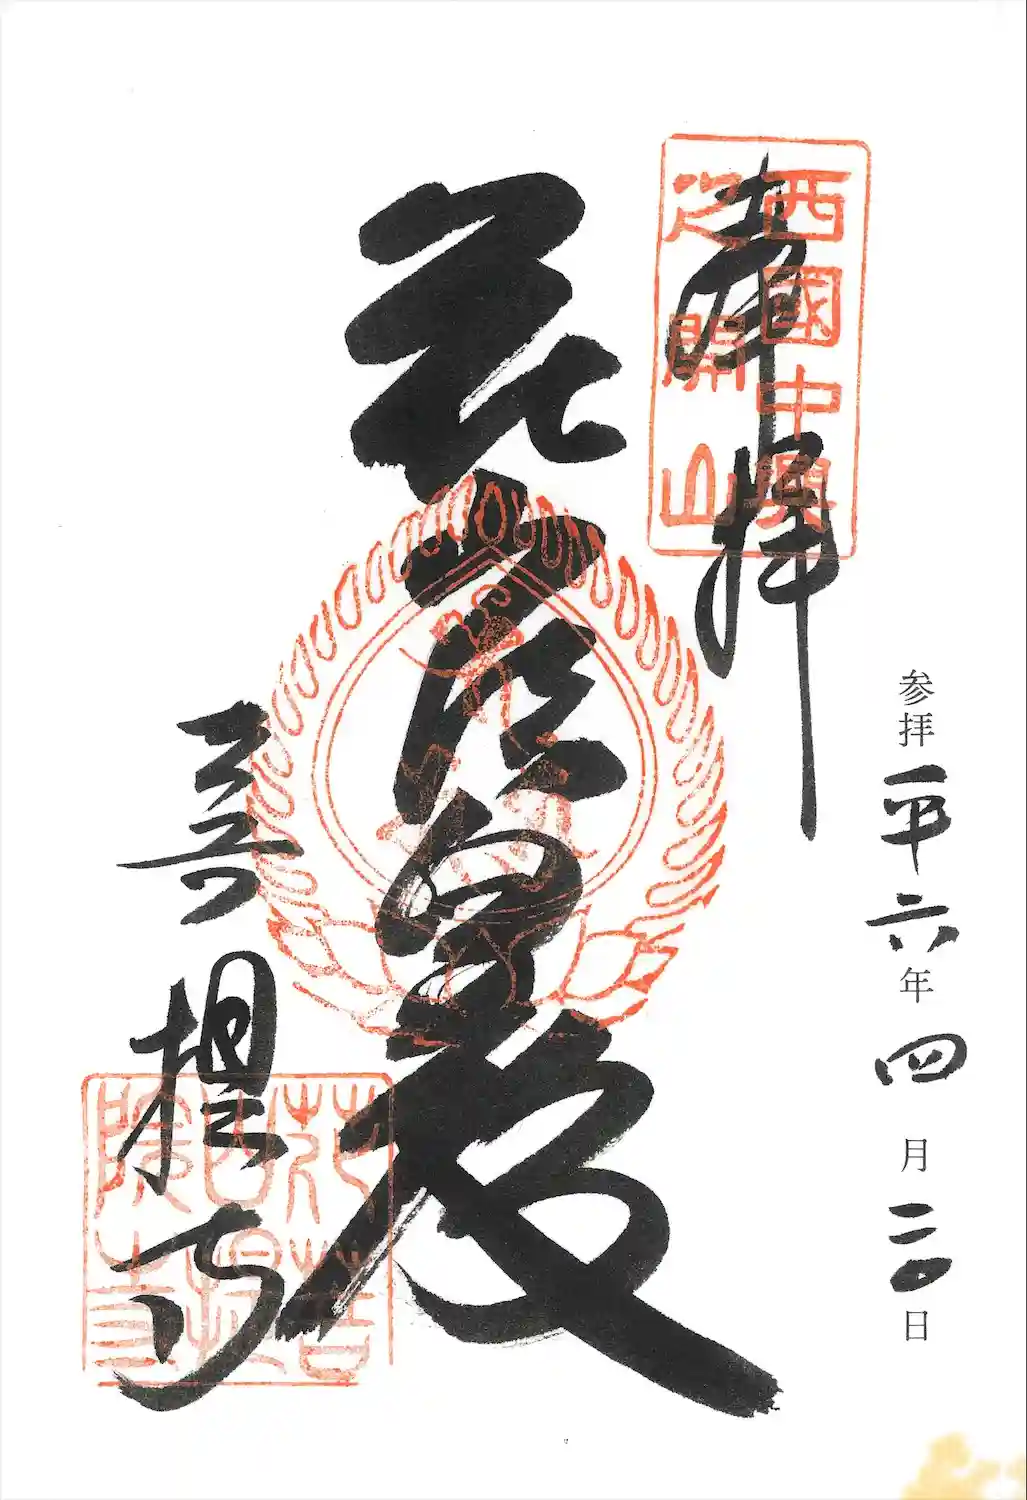 参拝 平六年四月二〇日
奉拝
西國中興
之開山
花山法皇殿
菩提寺
花山院
菩提寺